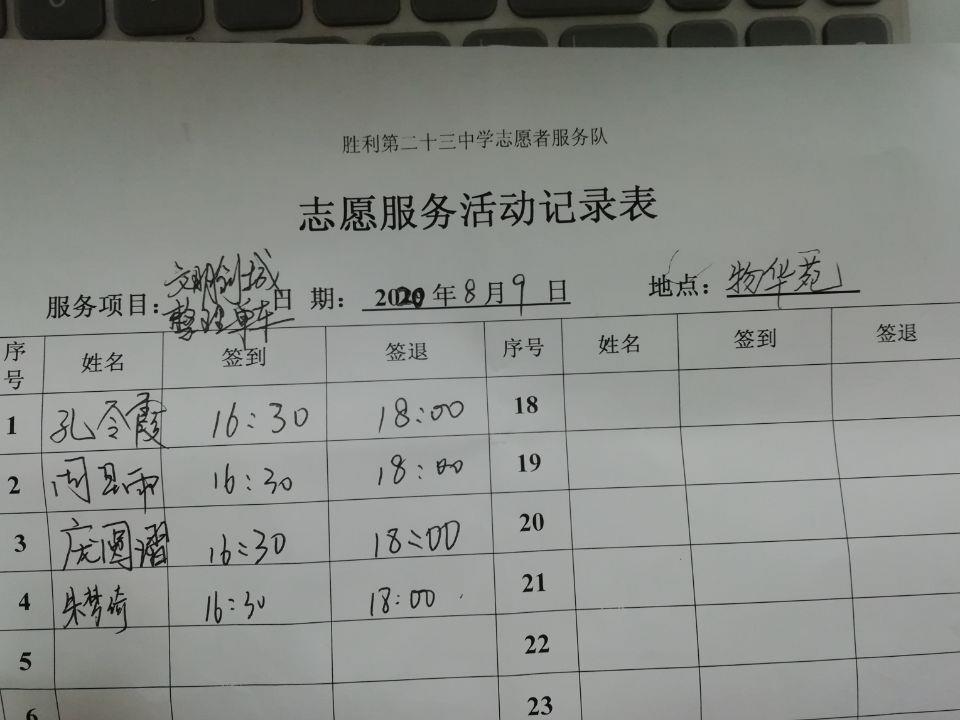 胜利第二十三中学志愿者服务队
志愿服务活动记录表
服务项目: 文明创城 整理单车 日 期: 2020 年 8 月 9 日 地点: 物华苑
序号 姓名 签到 签退 序号 姓名 签到 签退
1 孔令霞 16:30 18:00 18
2 16:30 18:00 19
3 16:30 18:00 20
4 朱梦琦 16:30 18:00 21
5 22
6 23